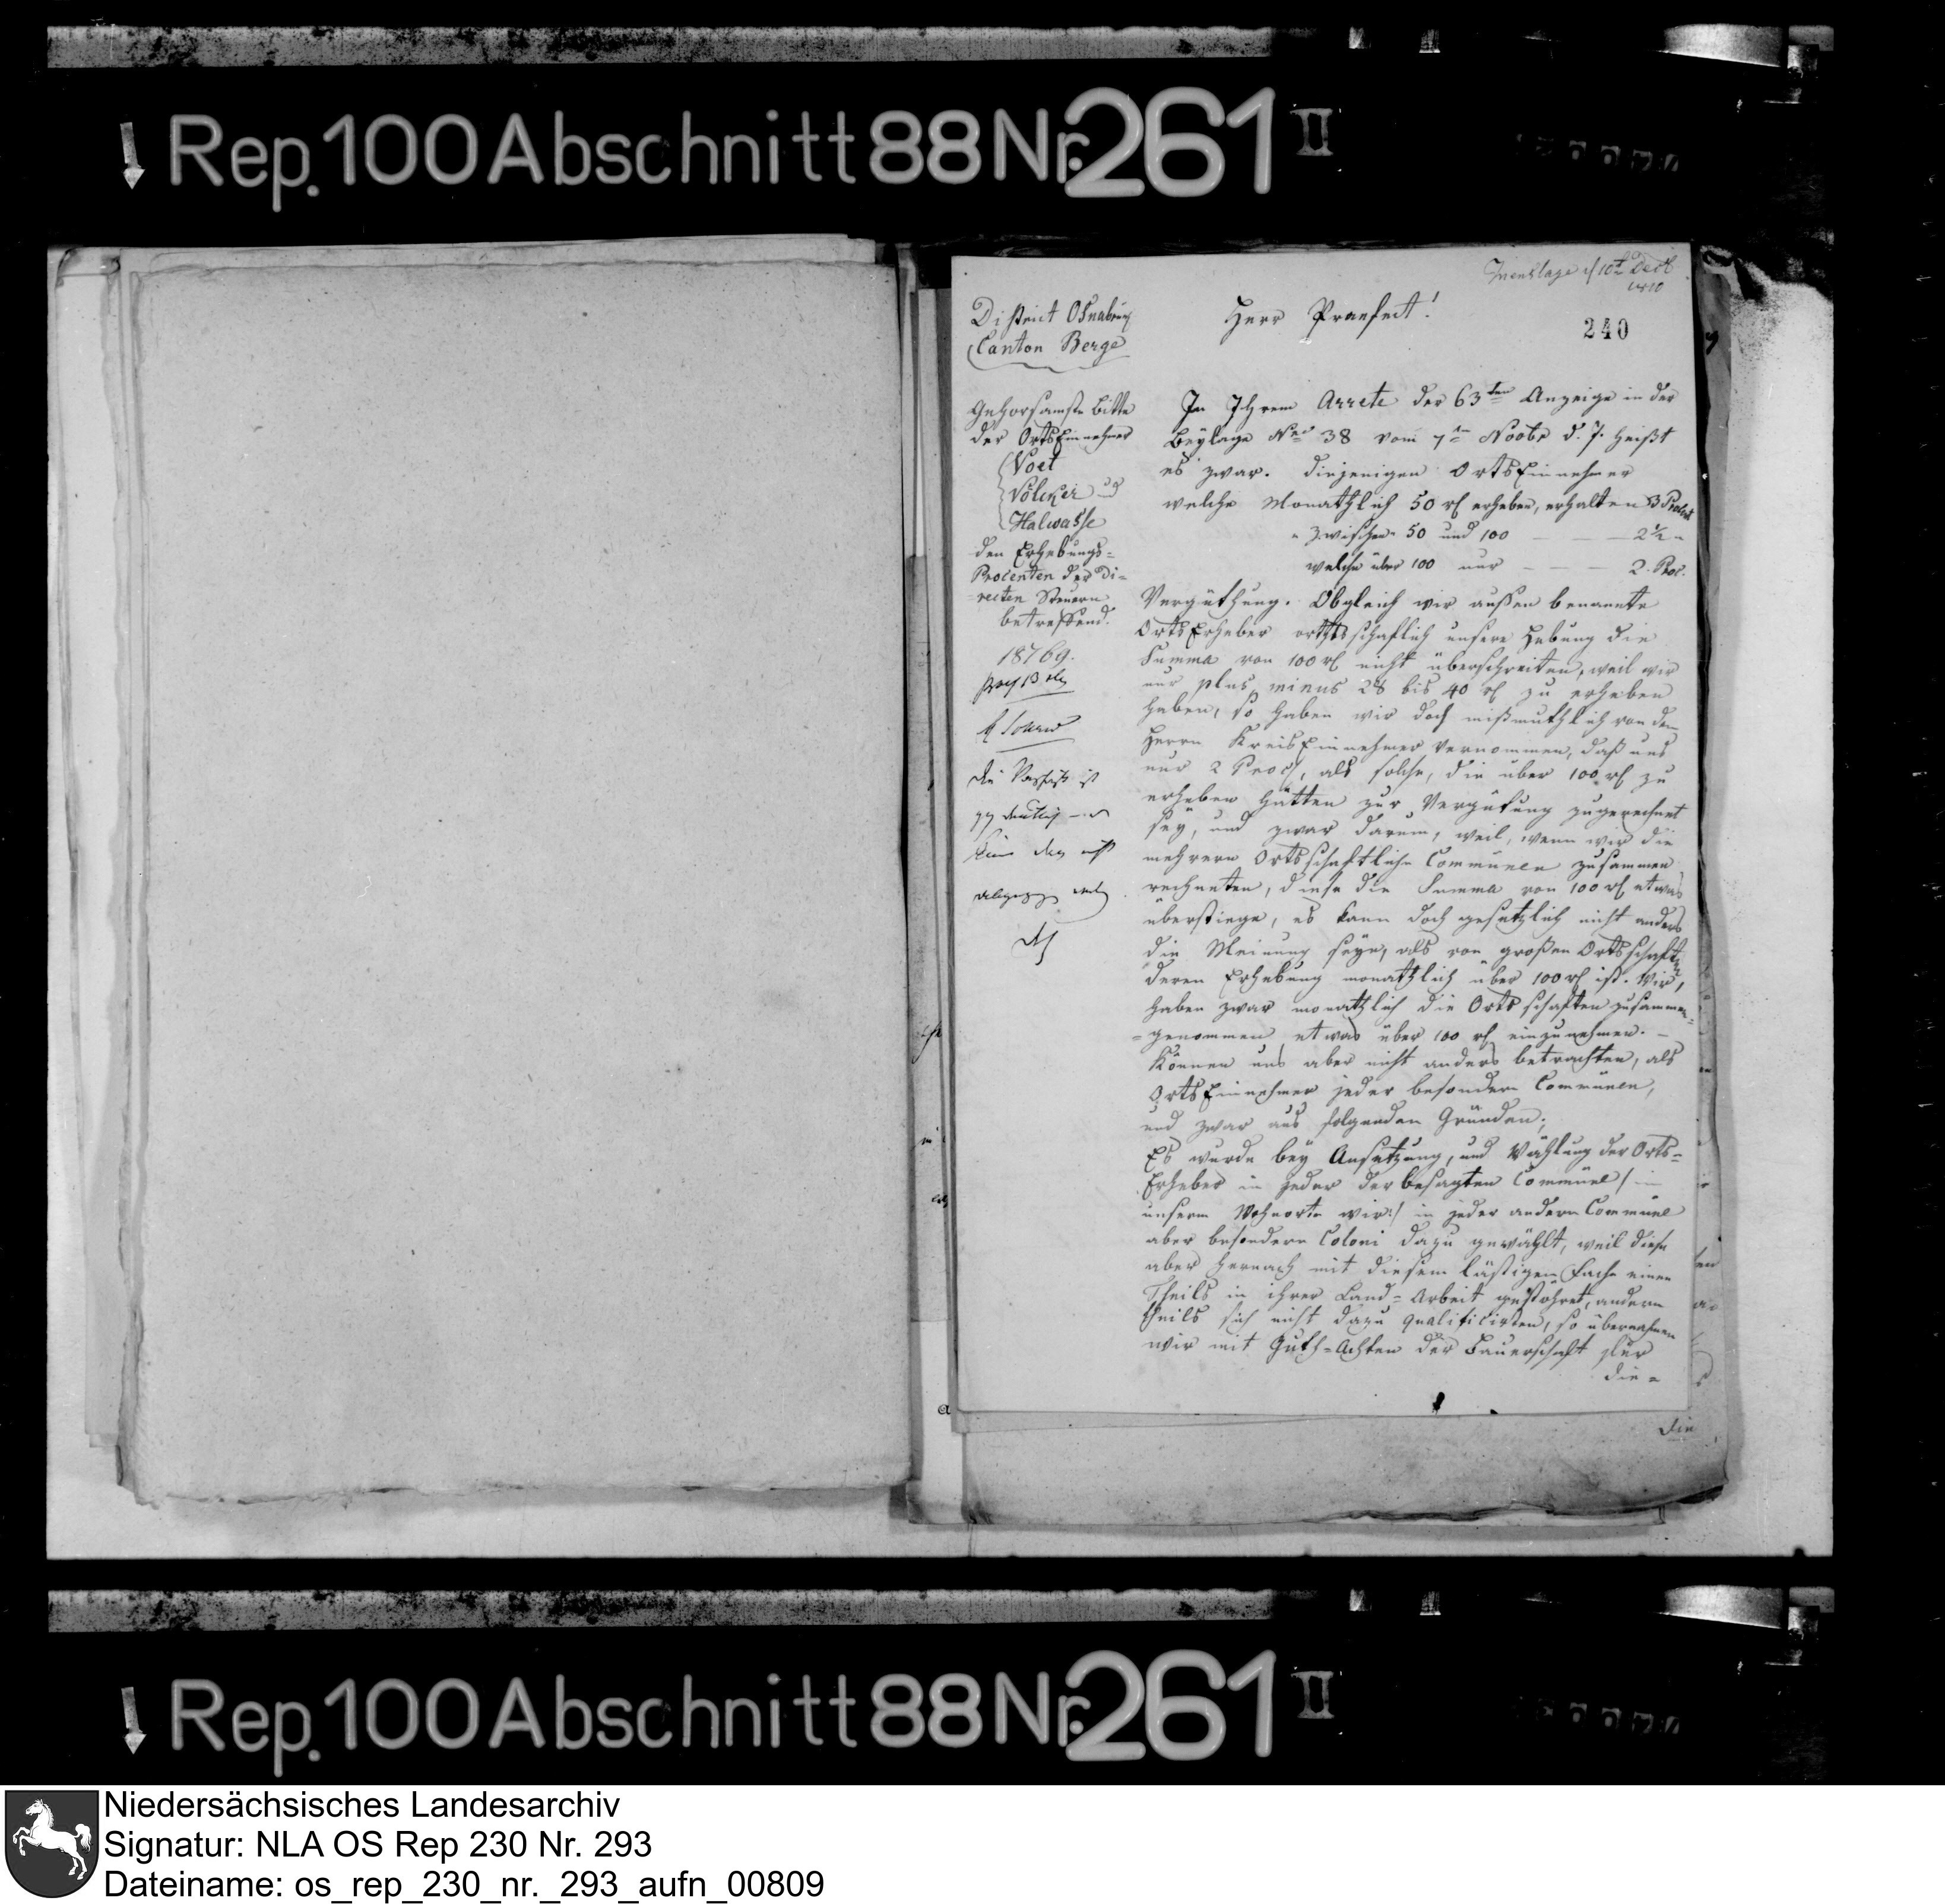 Rep. 100 Abschnitt 88 Nr. 261 II
Menslage d 10t Decb
1810
240
District Osnabrück
Canton Berge
Herr Praefect!
Gehorsamste Bitte
der OrtsEinnehmer
Voet
Völcker und
Halwasse
den Erhebungs-
Procenten der Di-
recten Steuern
betreffend.
18769.
In Ihrem Arrete der 63ten Anzeige in der
Beylage Nro 38 vom 7ten Novbr d. J. heißt
es zwar. diejenigen OrtsEinnehmer
welche Monathlich 50 rt erheben, erhalten 3 Procent
" zwischen 50 und 100 — — — 2½ "
welche über 100 nur — — — 2. Proc.
Vergüthung. Obgleich wir außen benannte
OrtsErheber orthsschaftlich unsere Hebung die
Summa von 100 rt nicht überschreiten, weil wir
nur plus minus 28 bis 40 rt zu erheben
haben, so haben wir doch mißmuthlich von dem
Herrn KreisEinnehmer vernommen, daß uns
nur 2 Proc, als solche, die über 100 rt zu
erheben hätten zur Vergütung zugerechnet
sey, und zwar darum, weil, wenn wir die
mehrern Ortsschaftliche Communen zusammen
rechneten, diese die Summa von 100 rt etwas
überstiege, es kann doch gesetzlich nicht anders
die Meinung seyn, als von großen Ortsschaften
deren Erhebung monathlich über 100 rt ist. Wir,
haben zwar monathlich die Ortsschaften zusammen-
genommen etwas über 100 rt einzunehmen. —
Können uns aber nicht anders betrachten, als
OrtsEinnehmer jeder besondern Communen,
und zwar aus folgenden Gründen;
Es wurde bey Ansetzung, und Wählung der Orts-
Erheber in jeder der besagten Commune / in
unserm Wohnorte wir:/ in jeder andern Commune
aber besondere Coloni dazu gewählt, weil diese
aber hernach mit diesem lästigen Fache einen
Theils in ihrer Land-Arbeit gestöhret, andern
theils sich nicht dazu qualificirten, so übernahmen
wir mit Guth-Achten der Bauerschaft
die-
die
Rep. 100 Abschnitt 88 Nr. 261 II
Niedersächsisches Landesarchiv
Signatur: NLA OS Rep 230 Nr. 293
Dateiname: os_rep_230_nr._293_aufn_00809